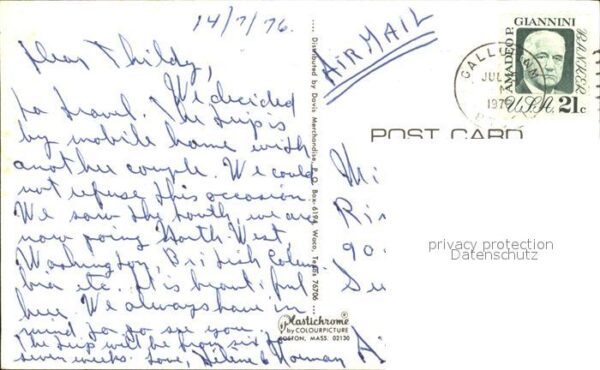 14/7/76.
Dear Thildy,
We decided
to travel. The trip is
by mobile home with
another couple. We could
not refuse this occasion.
We saw the South, we are
now going North-West,
Washington, British Colum-
bia etc. It is beautiful
here. We always have in
mind to go see you.
The trip will be from six to
seven weeks. Love, Hélène & Norman
Distributed by Davis Merchandise, P. O. Box 6194, Waco, Texas 76706
Plastichrome®
by COLOURPICTURE
BOSTON, MASS. 02130
AIR MAIL
JUL
M
197
AMADEO P. GIANNINI
BANKER
USA 21c
POST CARD
Mi
Ri
90
Su
A
privacy protection
Datenschutz